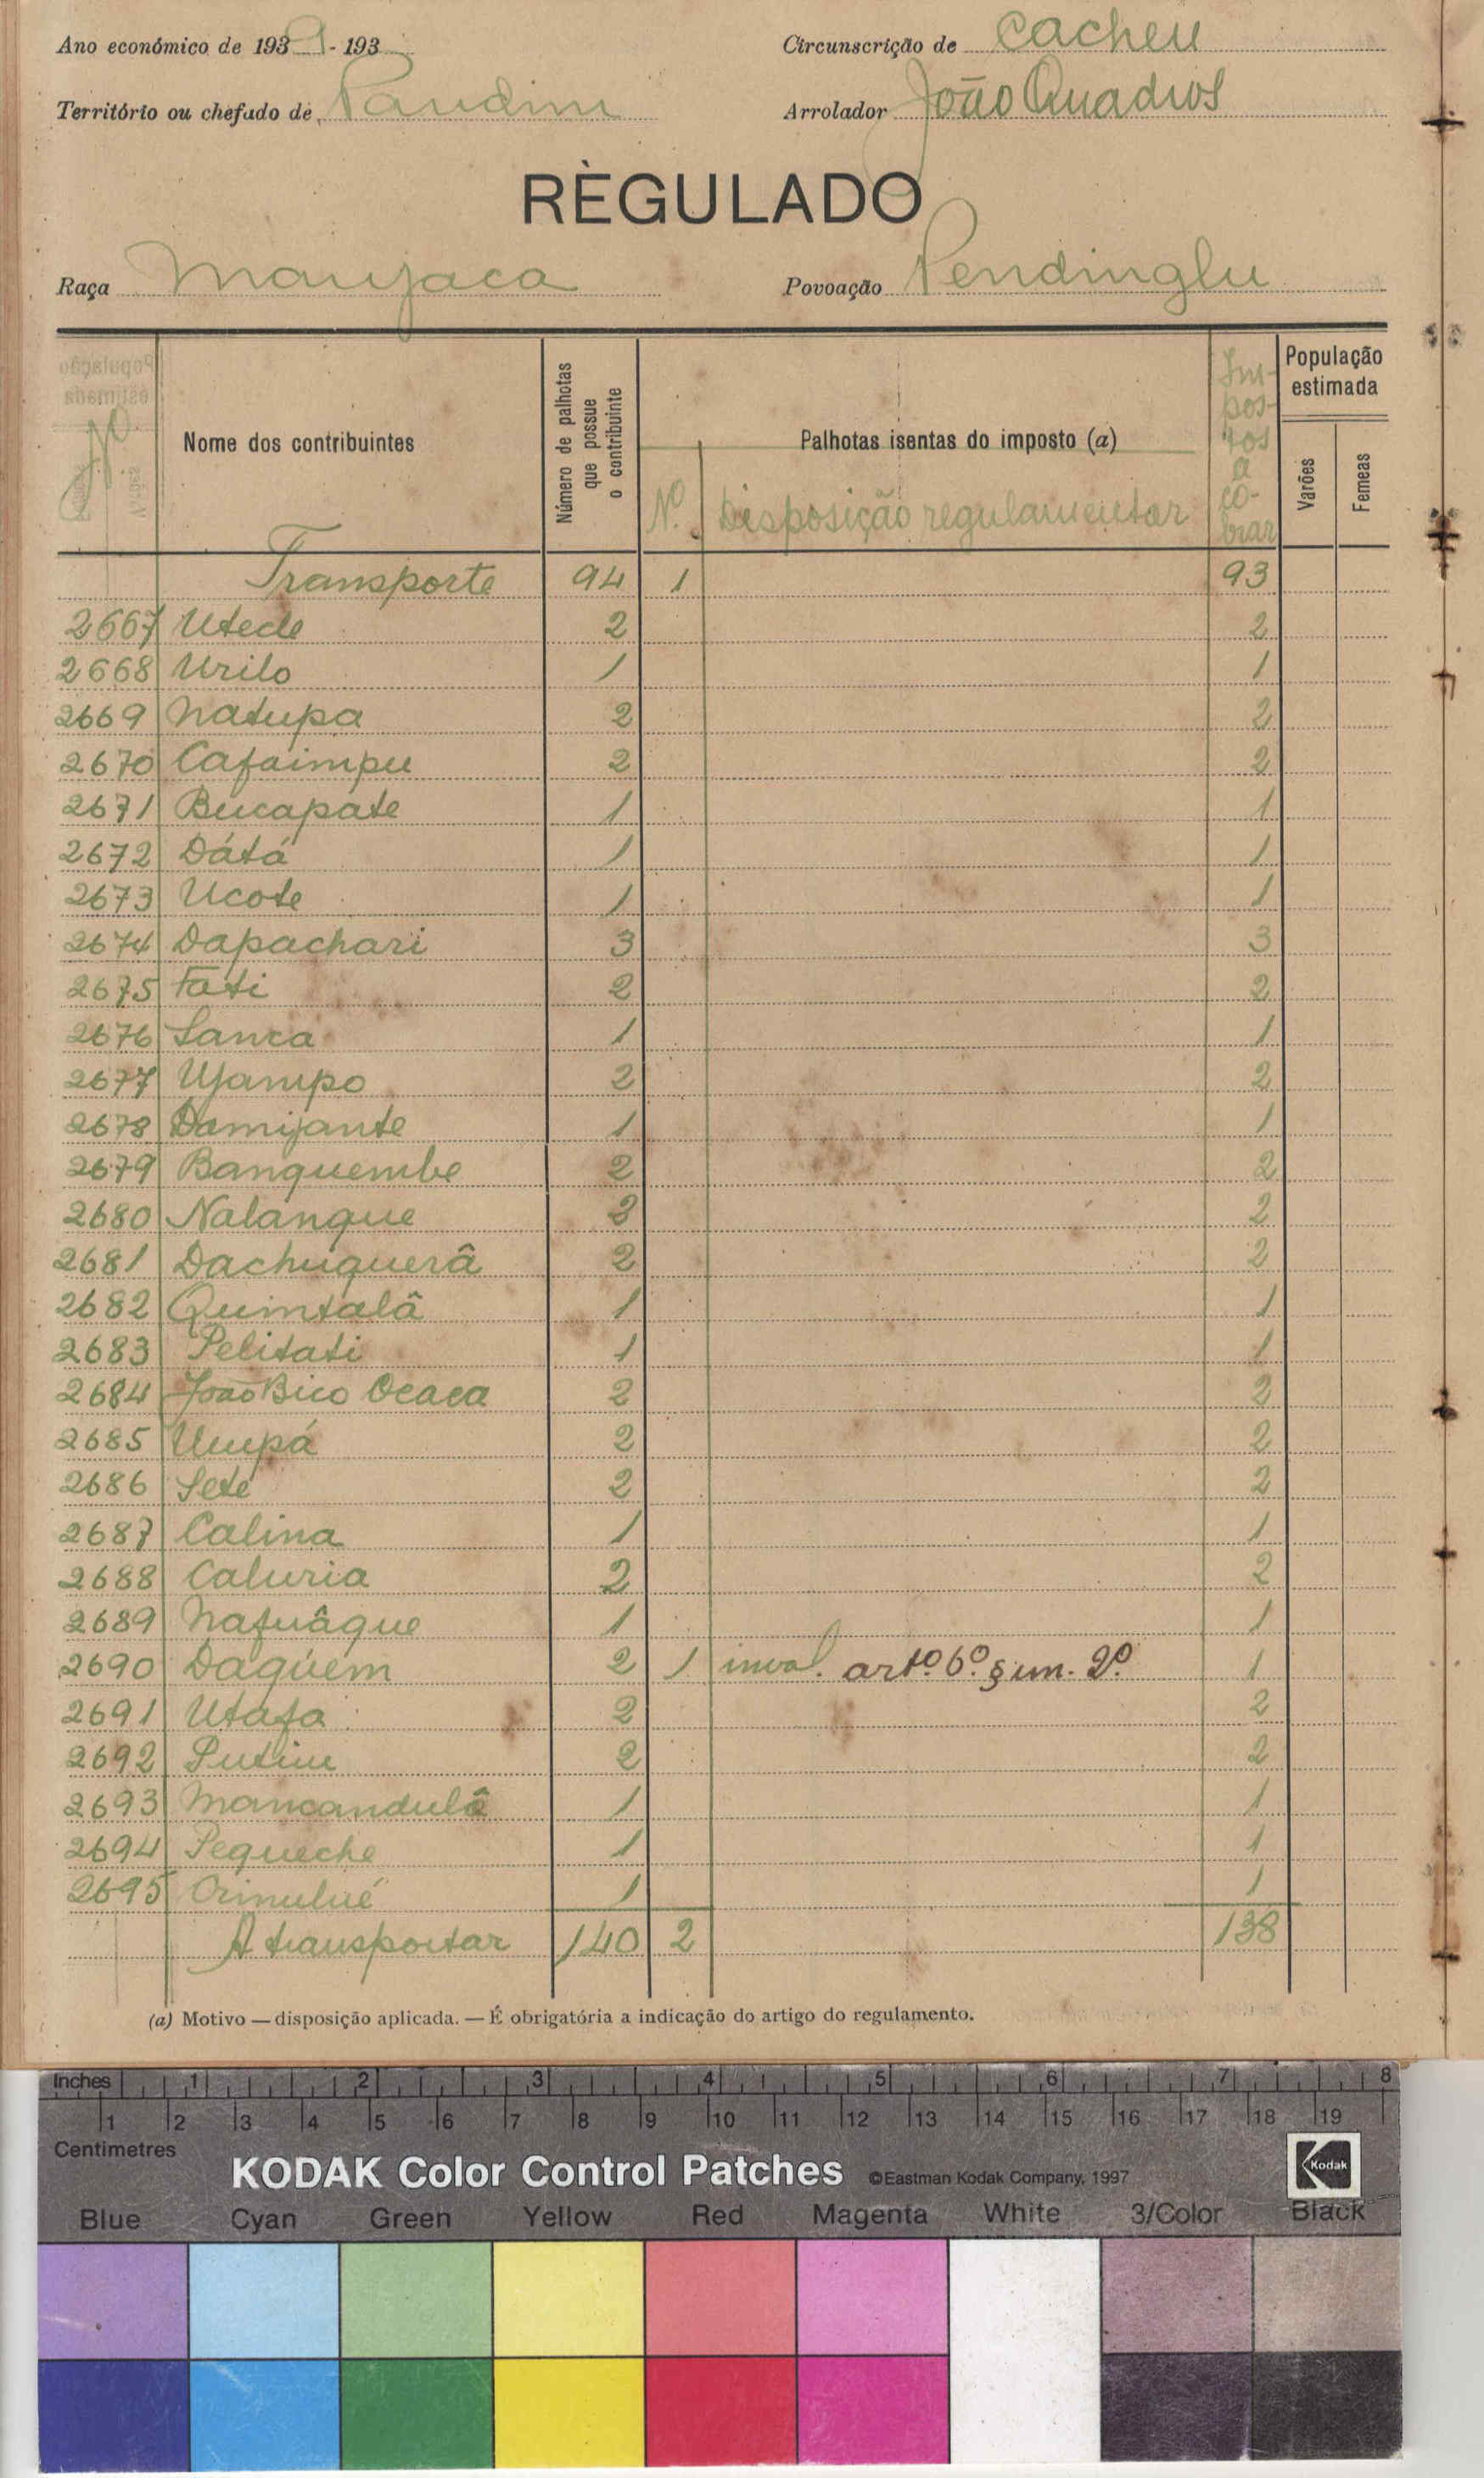 Ano económico de 1939-193
Circunscrição de Cacheu
Território ou chefado de Pandim
Arrolador João Quadros
RÈGULADO
Raça Manjaca
Povoação Pendinglu
Nº
Nome dos contribuintes
Número de palhotas que possue o contribuinte
Palhotas isentas do imposto (a)
Nº. Disposição regulamentar
Impostos a cobrar
População estimada
Varões
Femeas
Transporte 94 1 93
2667 Utede 2 2
2668 Urilo 1 1
2669 Natupa 2 2
2670 Cafaimpu 2 2
2671 Bucapate 1 1
2672 Dátá 1 1
2673 Ucote 1 1
2674 Dapachari 3 3
2675 Fati 2 2
2676 Sanca 1 1
2677 Ujampo 2 2
2678 Damijante 1 1
2679 Banquembe 2 2
2680 Nalanque 2 2
2681 Dachuquerâ 2 2
2682 Quintalâ 1 1
2683 Pelitati 1 1
2684 João Bico Ocaca 2 2
2685 Umpá 2 2
2686 Sete 2 2
2687 Calina 1 1
2688 Caluria 2 2
2689 Nafuâque 1 1
2690 Daguem 2 1 inval. artº. 6º. § un. 2º. 1
2691 Utafa 2 2
2692 Putim 2 2
2693 Mancandulâ 1 1
2694 Pequeche 1 1
2695 Orimulué 1 1
A transportar 140 2 138
(a) Motivo — disposição aplicada. — É obrigatória a indicação do artigo do regulamento.
Inches 1 2 3 4 5 6 7 8
1 2 3 4 5 6 7 8 9 10 11 12 13 14 15 16 17 18 19
Centimetres
KODAK Color Control Patches ©Eastman Kodak Company, 1997 Kodak
Blue Cyan Green Yellow Red Magenta White 3/Color Black